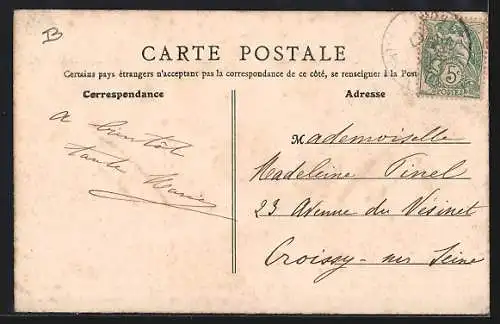 B
CARTE POSTALE
Certains pays étrangers n'acceptant pas la correspondance de ce côté, se renseigner à la Post
Correspondance
Adresse
5c
POSTES
a bientôt
tante Marie
Mademoiselle
Madeleine Pinel
23 Avenue du Vésinet
Croissy-sur Seine